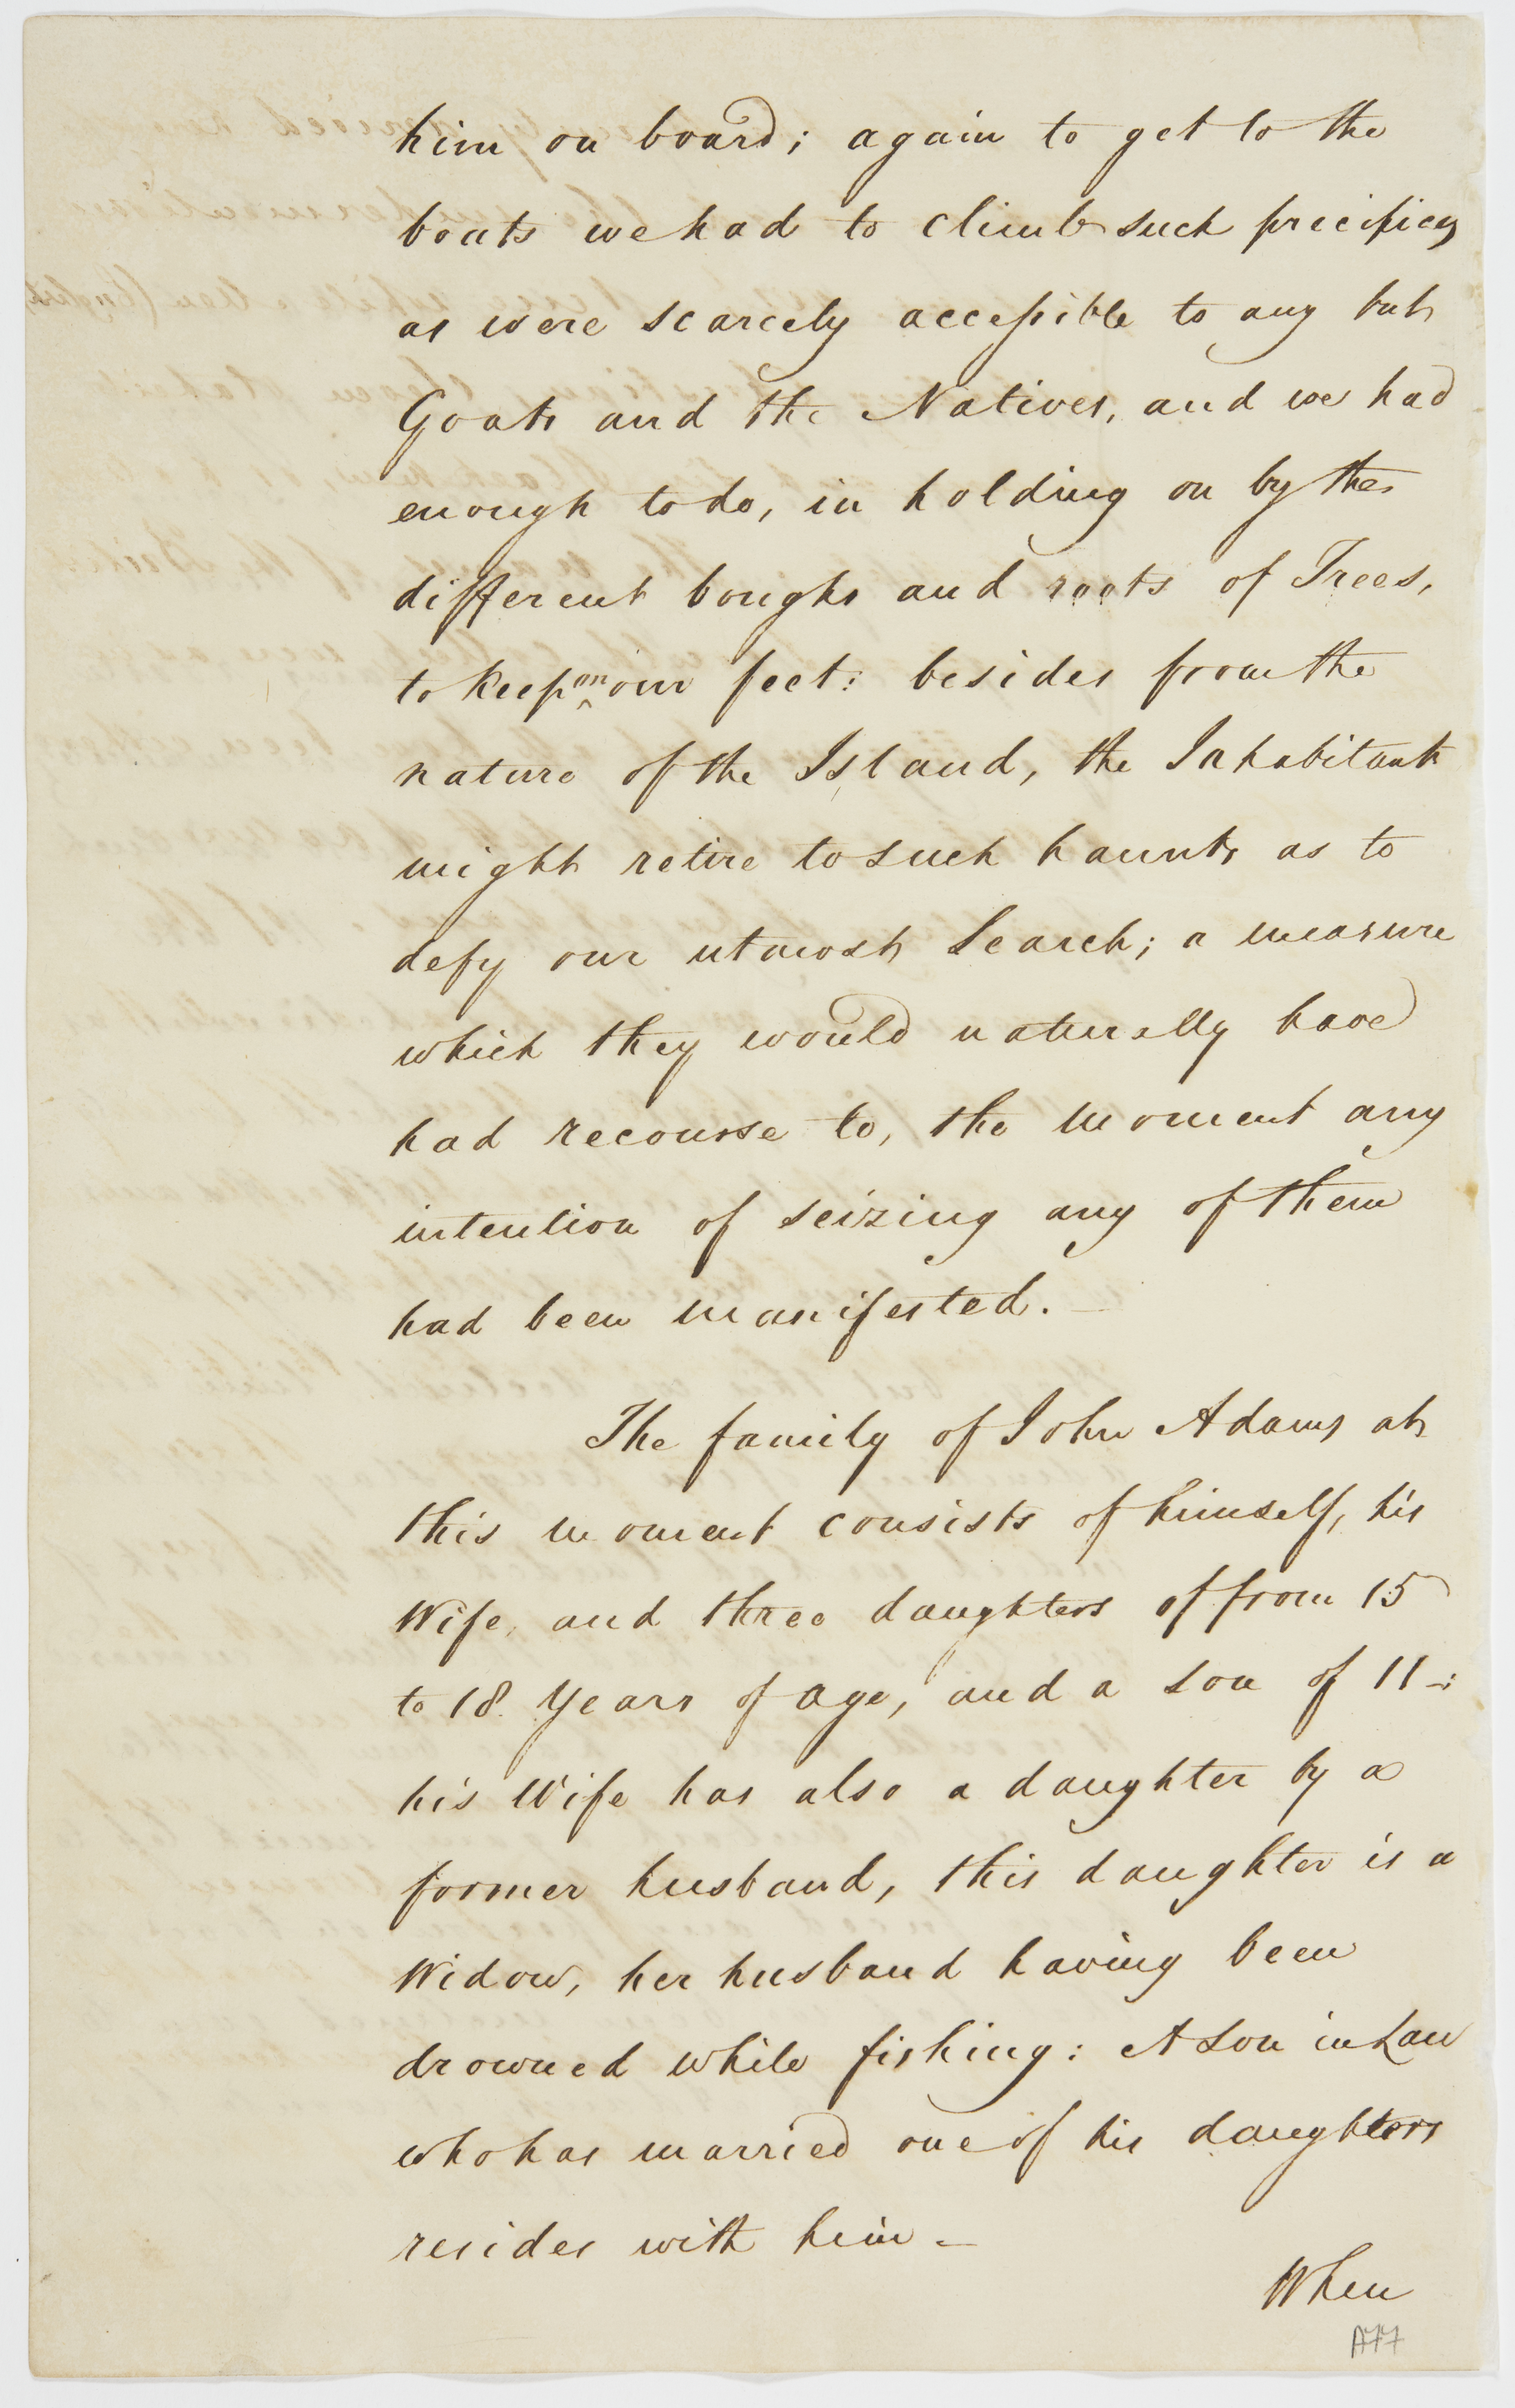 him on board; again to get to the
boats we had to climb such precipices
as were scarcely accessible to any but
Goats and the Natives, and we had
enough to do, in holding on by the
different boughs and roots of Trees,
to keep on our feet: besides from the
nature of the Island, the Inhabitants
might retire to such haunts as to
defy our utmost Search; a measure
which they would naturally have
had recourse to, the moment any
intention of seizing any of them
had been manifested. —
The family of John Adams at
this moment consists of himself, his
Wife, and three daughters of from 15
to 18. Years of age, and a Son of 11 —:
his Wife has also a daughter by a
former husband, this daughter is a
Widow, her husband having been
drowned while fishing: A Son in Law
who has married one of his daughters
resides with him —
When
A77